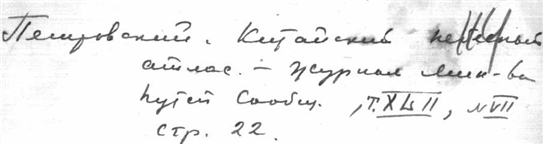 Петровский. Китайский
атлас. – Журнал Мин-ва
путей Сообщ., т. XLII, № VII
стр. 22.